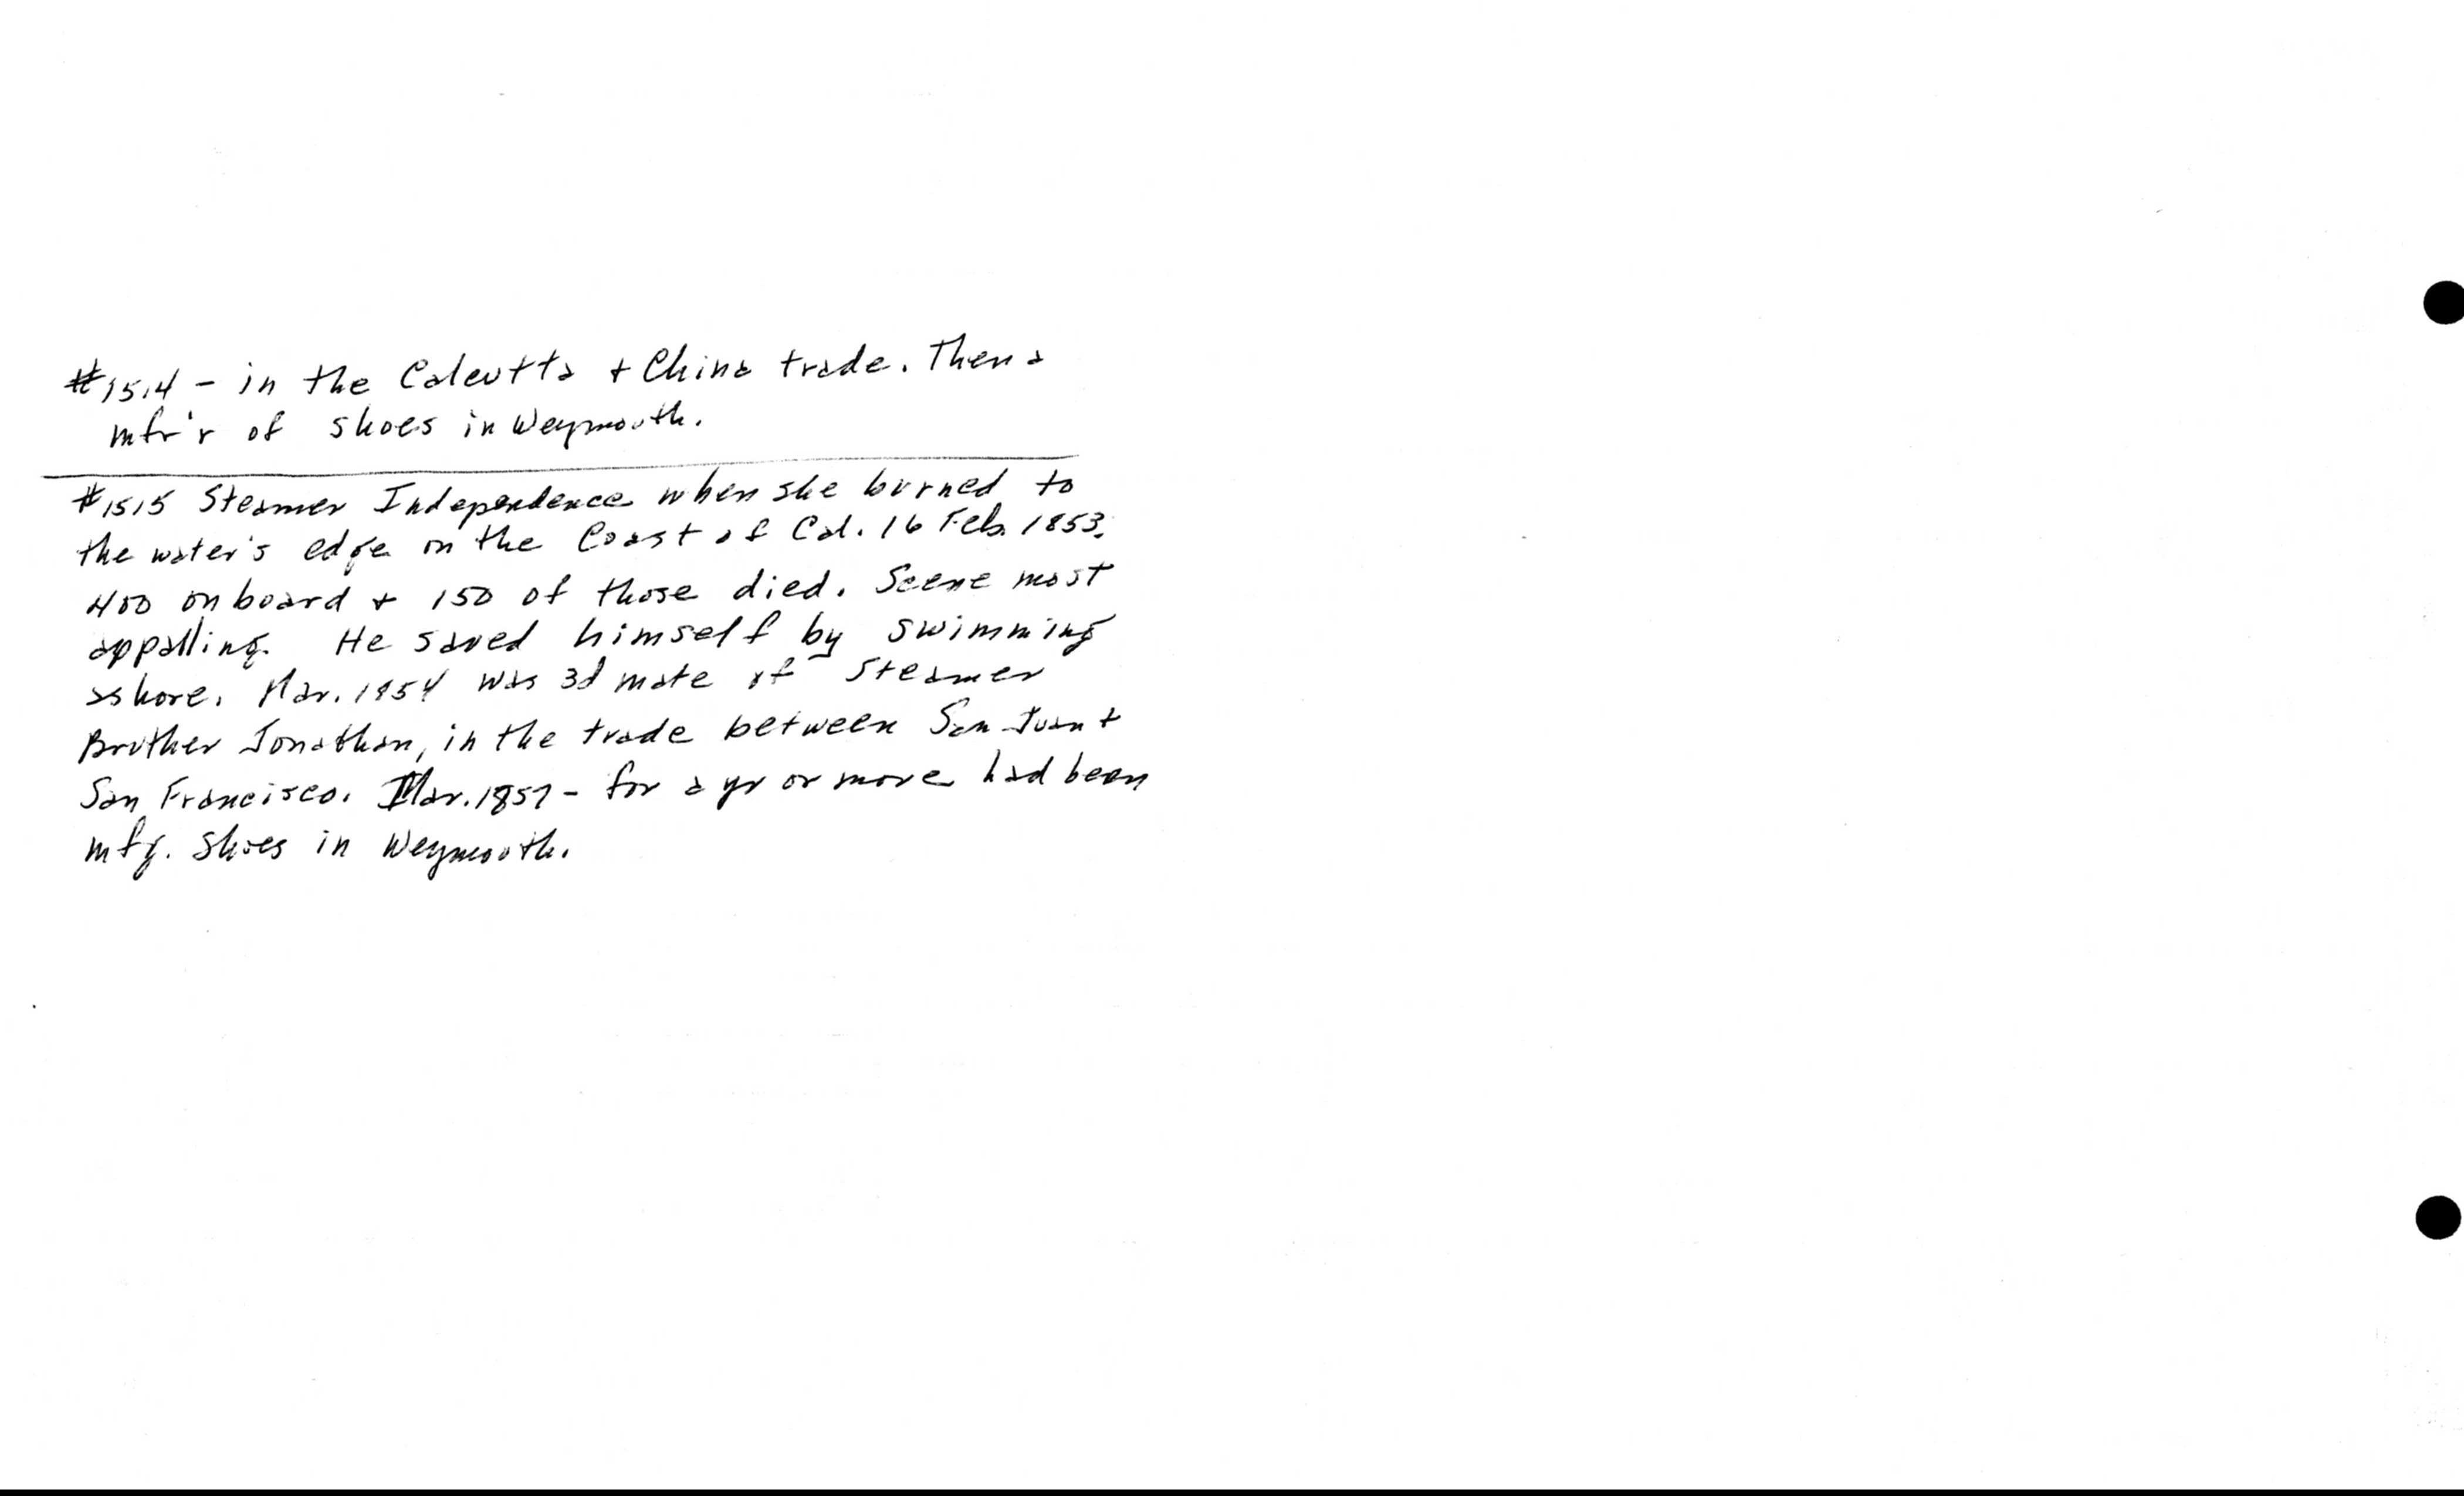 #1514 - in the Calcutta + China trade. Then a
mfr'r of shoes in Weymouth.
#1515 Steamer Independence when she burned to
the water's edge on the Coast of Cal. 16 Feb. 1853.
400 on board + 150 of those died. Scene most
appalling. He saved himself by swimming
ashore. Mar. 1854 was 3d mate of Steamer
Brother Jonathan, in the trade between San Juan +
San Francisco. Mar. 1857 - for a yr or more had been
mfg. shoes in Weymouth.